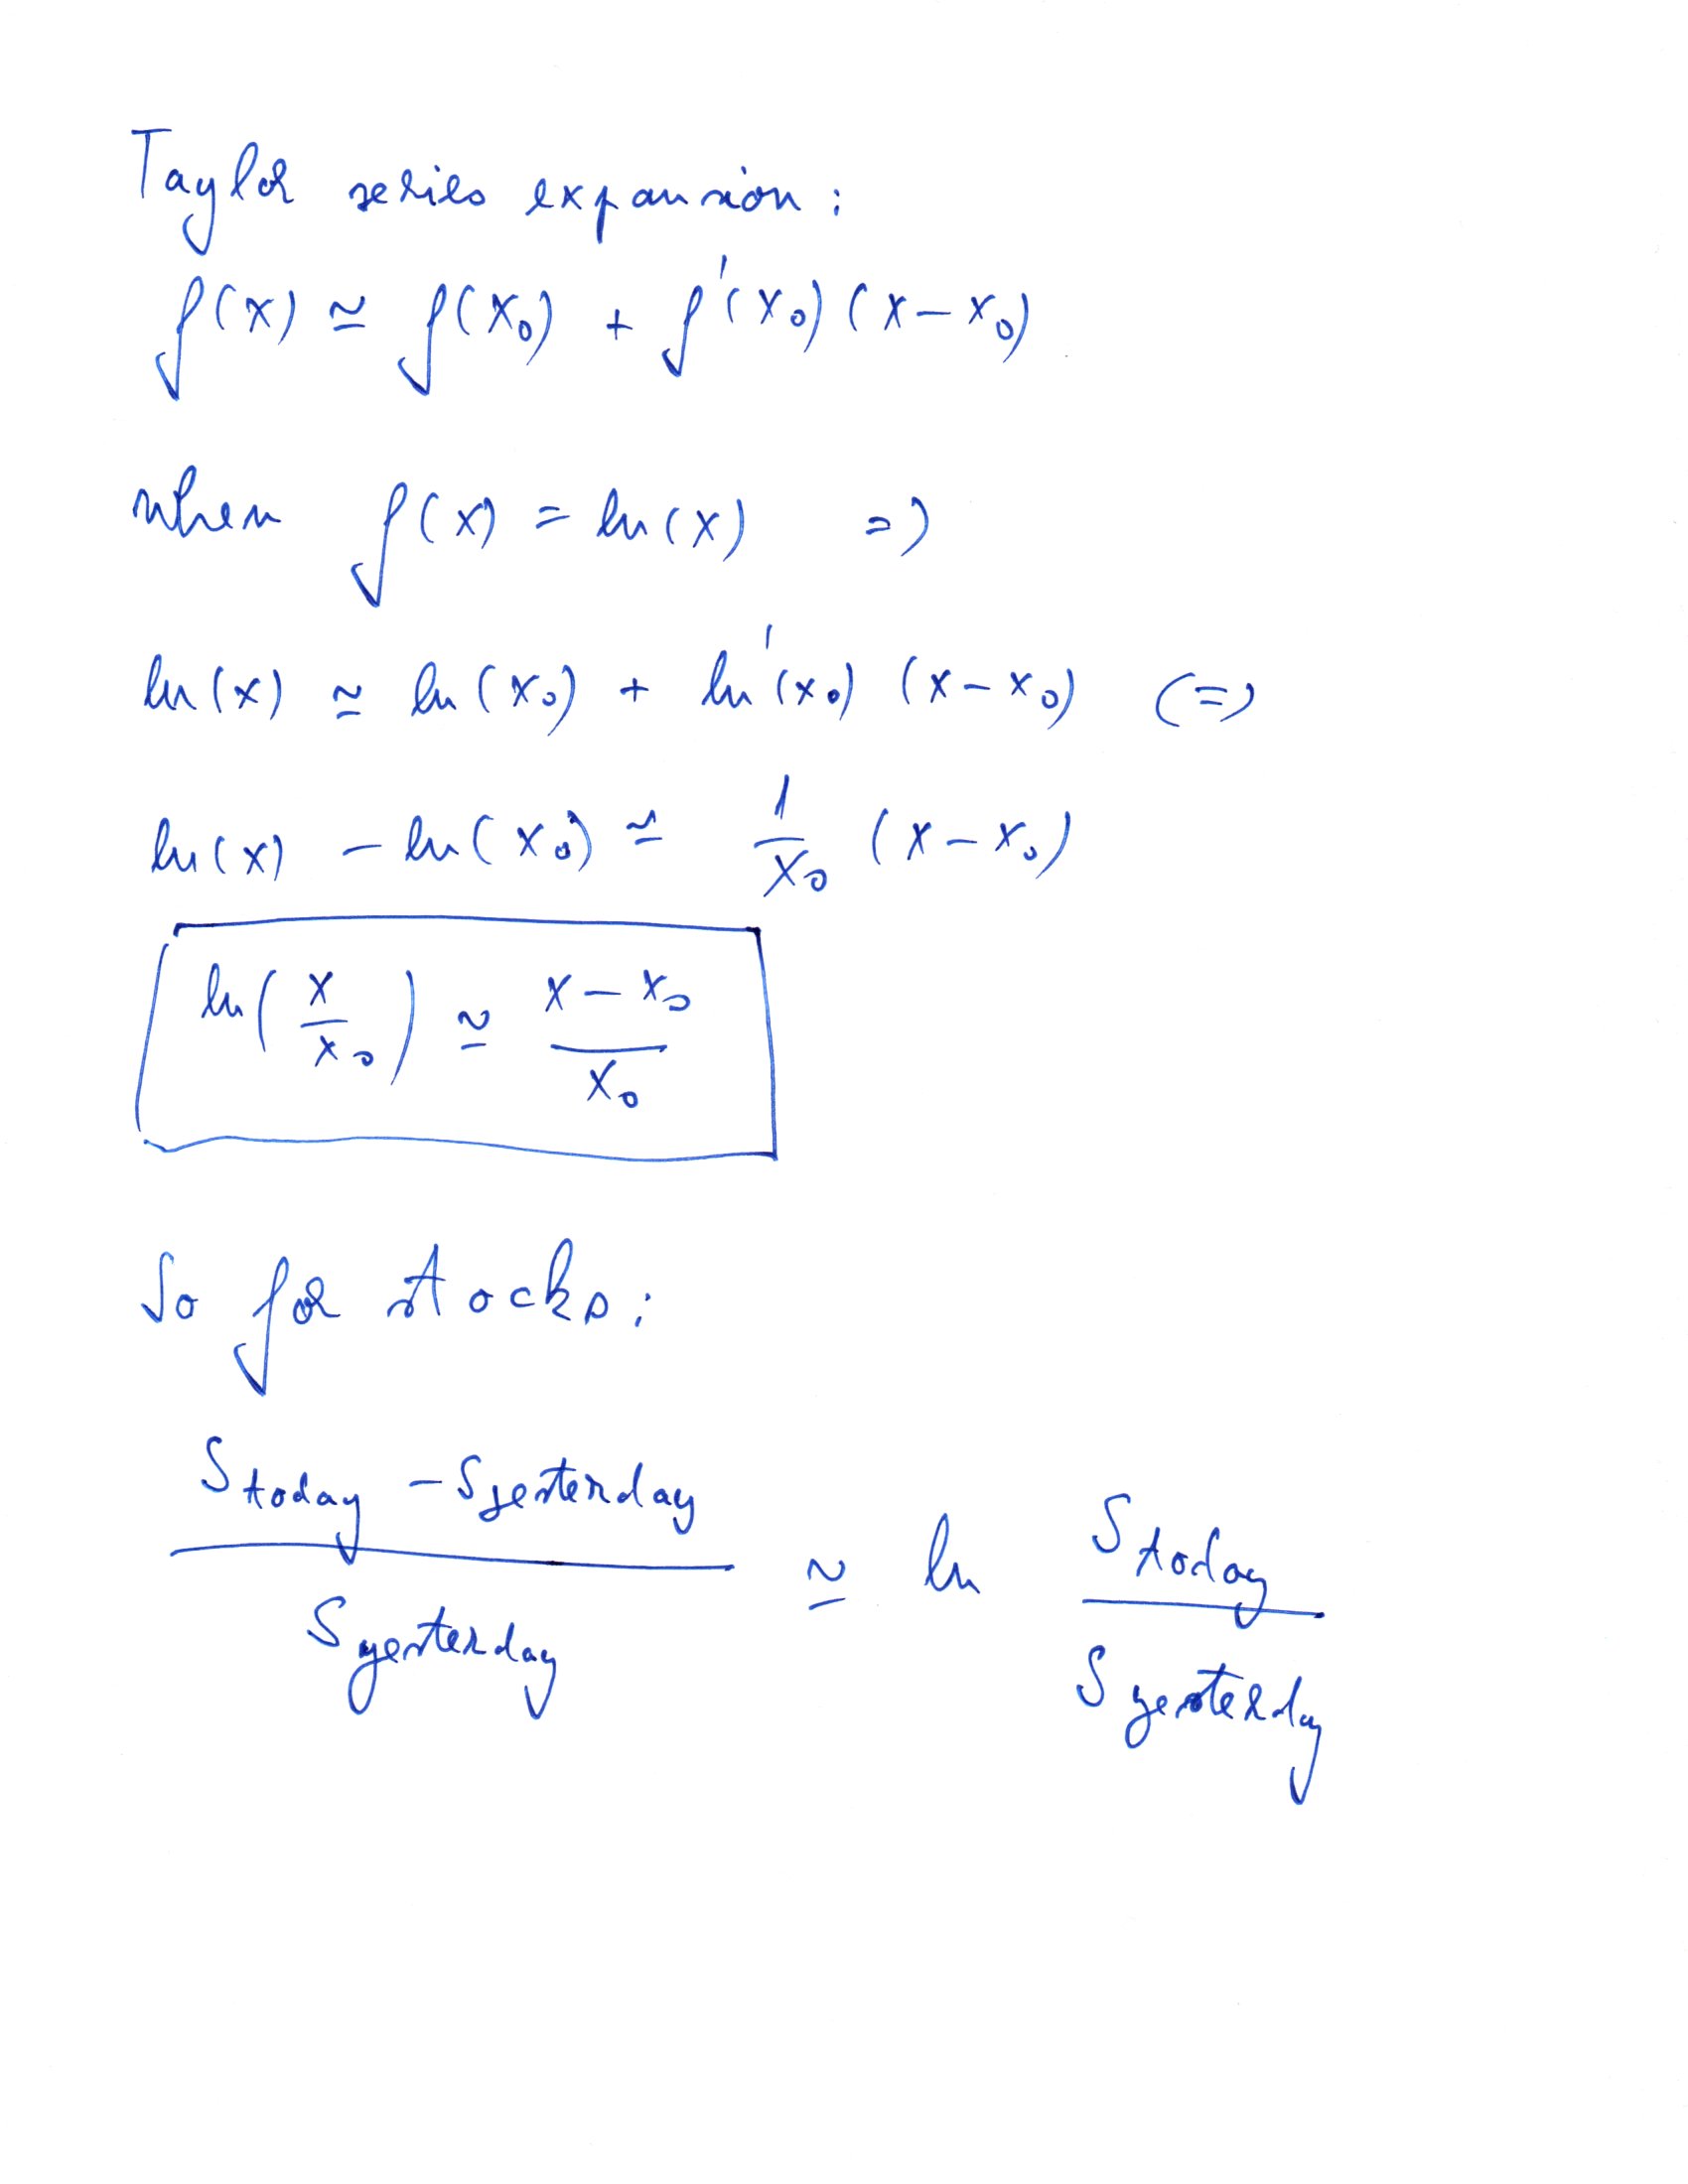 Taylor series expansion:
f(x) ≃ f(x₀) + f'(x₀)(x-x₀)
when f(x) = ln(x) =>
ln(x) ≃ ln(x₀) + ln'(x₀) (x-x₀) <=>
ln(x) - ln(x₀) ≃ 1/x₀ (x-x₀)
ln(x/x₀) ≃ (x-x₀)/x₀
So for stocks:
(S today - S yesterday)/(S yesterday) ≃ ln (S today)/(S yesterday)